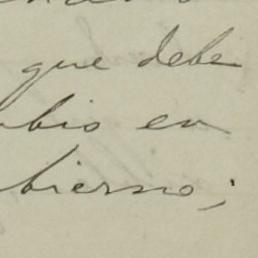 que debe
bio en
bierno;